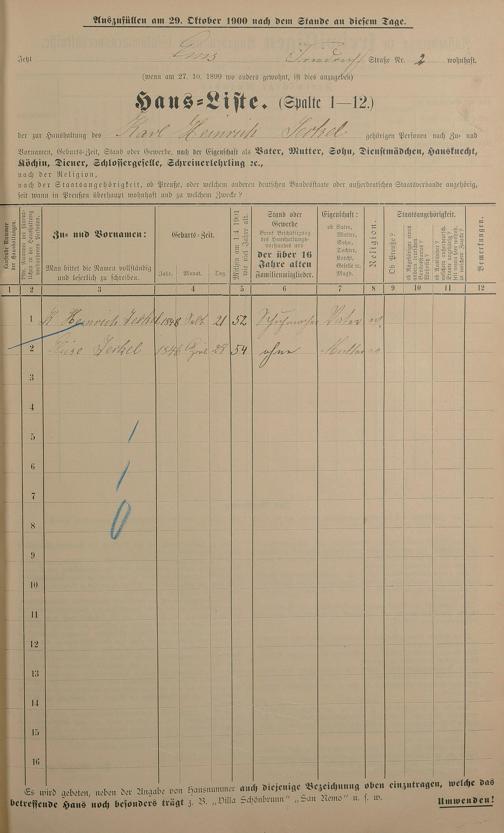 Auszufüllen am 29. Oktober 1900 nach dem Stande an diesem Tage.
Jetzt Ems Straße Nr. 2 wohnhaft.
(wenn am 27. 10. 1899 wo anders gewohnt, ist dies anzugeben)
Haus-Liste. (Spalte 1—12.)
der zur Haushaltung des Karl Heinrich gehörigen Personen nach Zu- und
Vornamen, Geburts-Zeit, Stand oder Gewerbe, nach der Eigenschaft als Vater, Mutter, Sohn, Dienstmädchen, Hausknecht,
Köchin, Diener, Schlossergeselle, Schreinerlehrling ꝛc.,
nach der Religion,
nach der Staatsangehörigkeit, ob Preuße, oder welchem anderen deutschen Bundesstaate oder außerdeutschen Staatsverbande angehörig,
seit wann in Preußen überhaupt wohnhaft und zu welchem Zwecke?
Zu- und Vornamen:
Man bittet die Namen vollständig
und leserlich zu schreiben.
Geburts-Zeit.
Jahr. Monat. Tag.
Mithin am 1/4 1901
wie viel Jahre alt
Stand oder
Gewerbe
der über 16
Jahre alten
Familienmitglieder.
Eigenschaft:
ob Vater,
Mutter,
Sohn,
Tochter,
Knecht,
Geselle,
Magd.
Religion.
Staatsangehörigkeit.
Ob Preuße?
Bemerkungen.
1 2 3 4 5 6 7 8 9 10 11 12
1 K. Heinrich 1848 21 52 Vater
2 1846 54 ohne Mutter
3
4
5
6
7
8
9
10
11
12
13
14
15
16
Es wird gebeten, neben der Angabe von Hausnummer auch diejenige Bezeichnung oben einzutragen, welche das
betreffende Haus noch besonders trägt z. B. „Villa Schönbrunn" „San Remo" u. s. w. Umwenden!